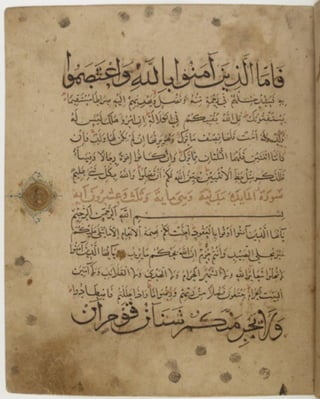 فاما الذين آمنوا بالله واعتصموا
به فسيدخلهم في رحمة منه وفضل ويهديهم اليه صراطا مستقيما
يستفتونك قل الله يفتيكم في الكلالة ان امرؤ هلك ليس له
ولد وله اخت فلها نصف ما ترك وهو يرثها ان لم يكن لها ولد فان
كانتا اثنتين فلهما الثلثان مما ترك وان كانوا اخوة رجالا ونساء
فللذكر مثل حظ الانثيين يبين الله لكم ان تضلوا والله بكل شيء عليم
سورة المائدة مدنية وهي مائة وثلث وعشرون آية
بسم الله الرحمن الرحيم
يا ايها الذين آمنوا اوفوا بالعقود احلت لكم بهيمة الانعام الا ما يتلى عليكم
غير محلي الصيد وانتم حرم ان الله يحكم ما يريد يا ايها الذين آمنوا
لا تحلوا شعائر الله ولا الشهر الحرام ولا الهدي ولا القلائد ولا آمين
البيت الحرام يبتغون فضلا من ربهم ورضوانا واذا حللتم فاصطادوا
ولا يجرمنكم شنآن قوم ان